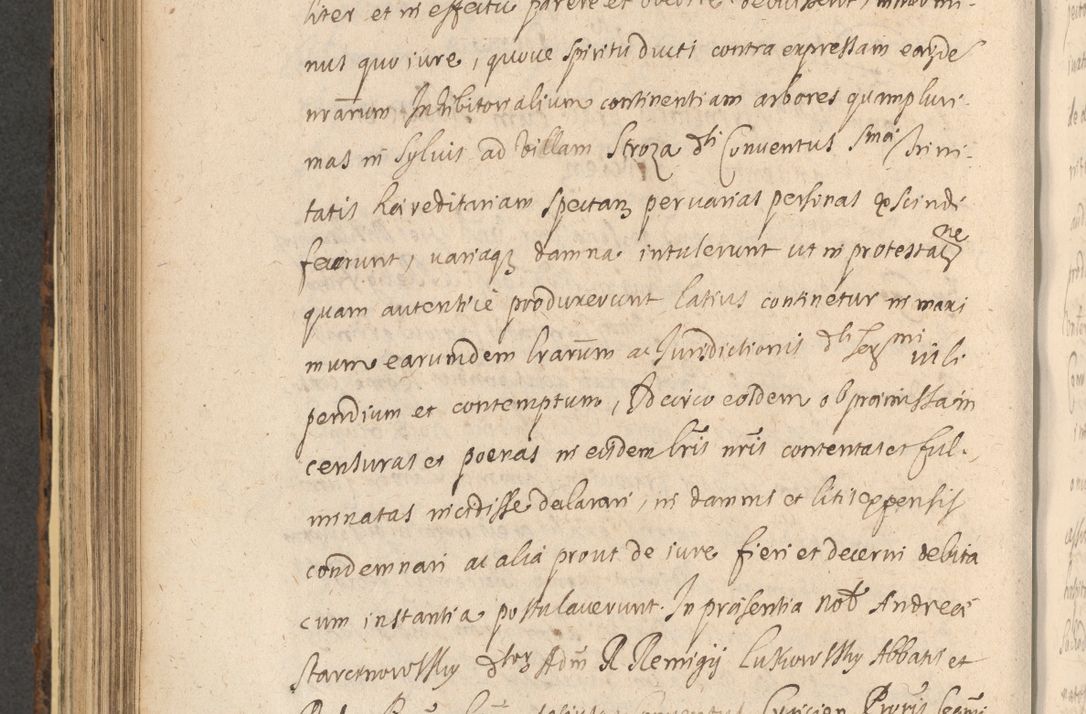 liter et in effectu parere et obedire debuissent,
nus quo iure, quove spiritu ducti contra expressam earūde
nrārum Inhibitorialium continentiam arbores quamplurí-
mas in Sylvis ad villam Stroza dti Conventus Smæ Trini-
tatis hæreditariam spectan͂ per varias personas exscindi
fecerunt, variaqȝ damna intulerunt ut in protestatne
quam autenticè produxerunt latius continetur in maxi
mum earumdem lrārum ac Jurisdictionis dti Sermi vili
pendium et contemptum, Idcirco eosdem ob præmissa in
censuras et poenas in eisdem lris nris contentas et ful-
minatas incidisse declarari, in damnis et litis expensis
condemnari ac alia prout de iure fieri et decerni debita
cum instantia postulaverunt. In præsentia Nob Andreæ
Starcznowsky dtor Adm R Remigij Lukowsky Abbatis et